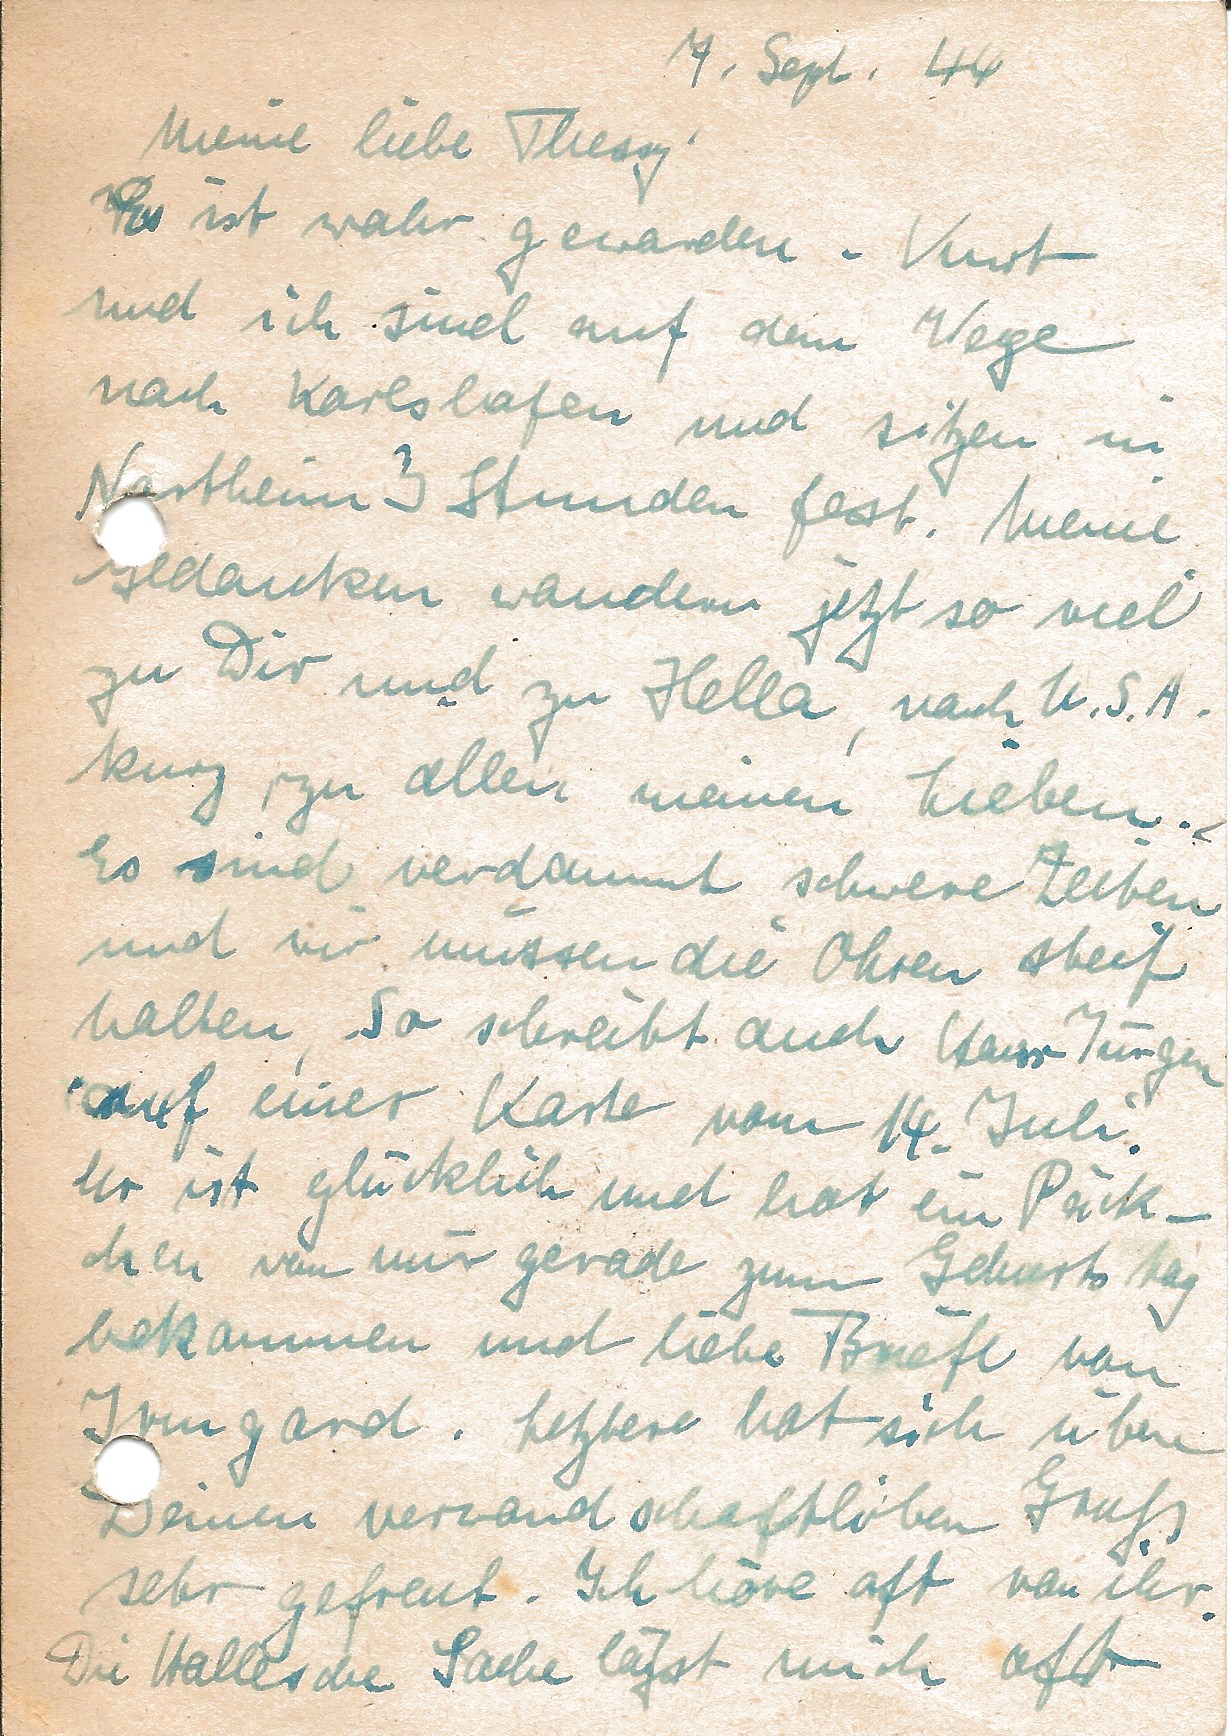 7. Sept. 44
Meine liebe Thessy!
Es ist wahr geworden. Kurt
und ich sind auf dem Wege
nach Karlshafen und sitzen in
Northeim 3 Stunden fest. Meine
Gedanken wandern jetzt so viel
zu Dir und zu Hella, nach U.S.A.
kurz, zu allen meinen Lieben.
Es sind verdammt schwere Zeiten
und wir müssen die Ohren steif
halten, So schreibt auch Hans Jürgen
auf einer Karte vom 14. Juli.
Er ist glücklich und hat ein Päck-
chen von mir gerade zum Geburtstag
bekommen und liebe Briefe von
Irmgard. Letztere hat sich über
Deinen verwandschaftlichen Gruß
sehr gefreut. Ich höre oft von ihr.
Die Hallesche Sache läßt mich oft